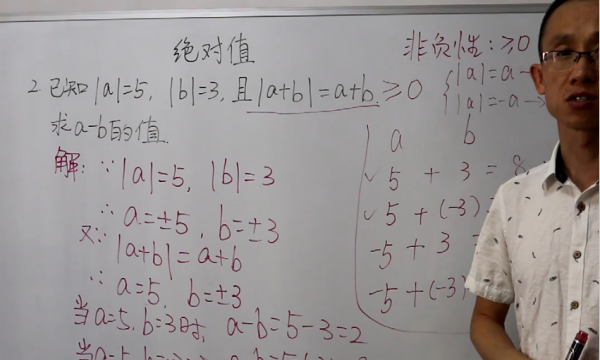 绝对值
非负性：≥0
2.已知|a|=5，|b|=3，且|a+b|=a+b.≥0
求a-b的值.
|a|=a
|a|=-a
解：∵|a|=5，|b|=3
∴a=±5，b=±3
又∵|a+b|=a+b
∴a=5，b=±3
当a=5，b=3时，a-b=5-3=2
a b
√5 + 3 = 8
√5 + (-3) =
-5 + 3 =
-5 + (-3)